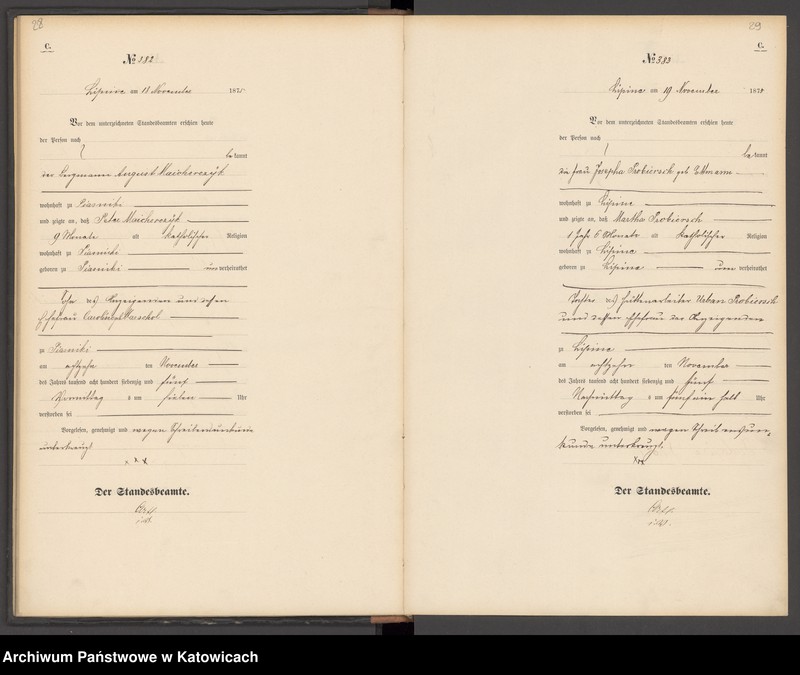 28
C.
№ 182
Lipine am 18 November 1875
Vor dem unterzeichneten Standesbeamten erschien heute
der Person nach
bekannt
der Bergmann August Maicherczyk
wohnhaft zu Piasniki
und zeigte an, daß Peter Maicherczyk
9 Monate alt katholischer Religion
wohnhaft zu Piasniki
geboren zu Piasniki unverheirathet
Sohn des Anzeigenden und dessen
Ehefrau
zu Piasniki
am achtzehn ten November
des Jahres tausend acht hundert siebenzig und fünf
Vormittag s um sieben Uhr
verstorben sei
Vorgelesen, genehmigt und wegen Schreibensunkunde
unterkreuzt
xxx
Der Standesbeamte.
29
C.
№ 383
Lipine am 19 November 1875
Vor dem unterzeichneten Standesbeamten erschien heute
der Person nach
bekannt
die Frau Josepha geb
wohnhaft zu Lipine
und zeigte an, daß Martha
1 Jahr 6 Monate alt katholischer Religion
wohnhaft zu Lipine
geboren zu Lipine unverheirathet
Tochter des Hüttenarbeiter Urban
und dessen Ehefrau der Anzeigenden
zu Lipine
am achtzehn ten November
des Jahres tausend acht hundert siebenzig und fünf
Nachmittag s um fünf ein halb Uhr
verstorben sei
Vorgelesen, genehmigt und wegen Schreibensun-
kunde unterkreuzt.
xxx
Der Standesbeamte.
Archiwum Państwowe w Katowicach